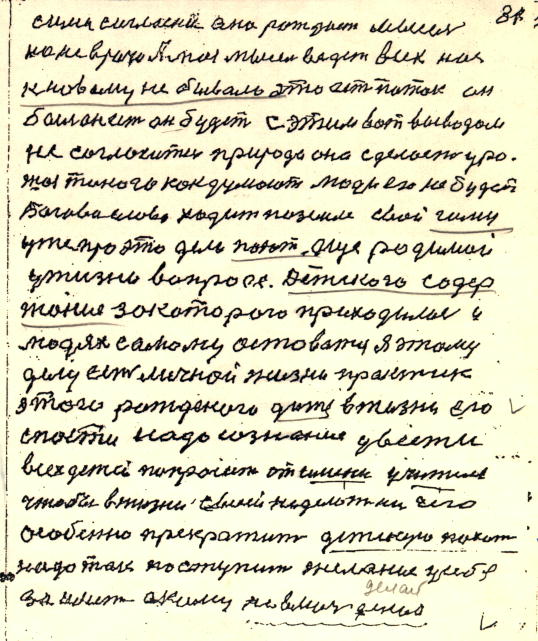 сама согласна она рождает мысль
не врача Я моя мысля ведет всех нас
к новому не бывало это ест поток он
был он ест он будет с этим вот выводом
не согласится природа она сделает уро.
жая такого как думают люди его не будет
Богова слово ходит по земле свой гимн
уже про это дело поют. Муж родимой
у жизни вопрос. Детского содер
жание за которого приходилось и
людях самому оставатся Я этому
делу есть личной жизни практик
этого рожденого дитя в жизни его
спасти надо сознание увести
всех детей попросит от имени учителя
чтобы в жизни своей не делал ни чего
особенно прекратит детскую похот
надо так поступит желание у себя
за имет а кому на влич делай дения